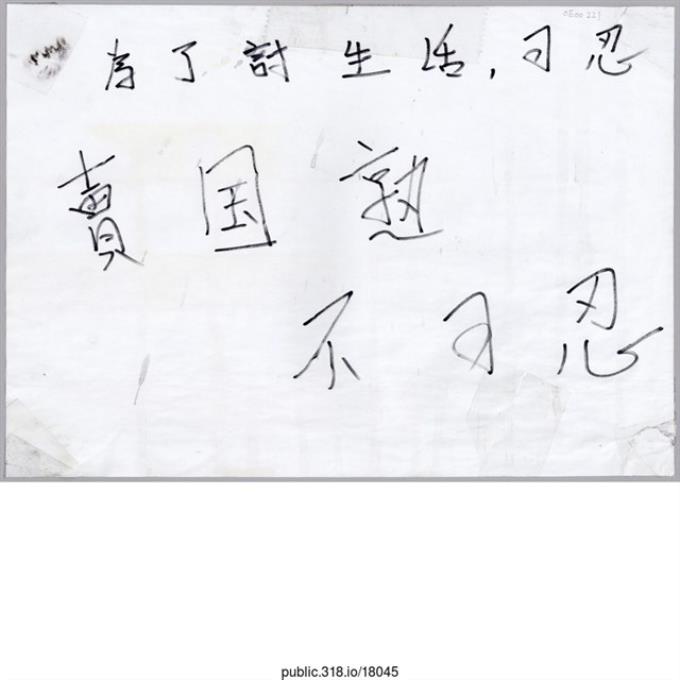 0E00221
為了討生活，可忍
賣国熟
不可忍
public.318.io/18045